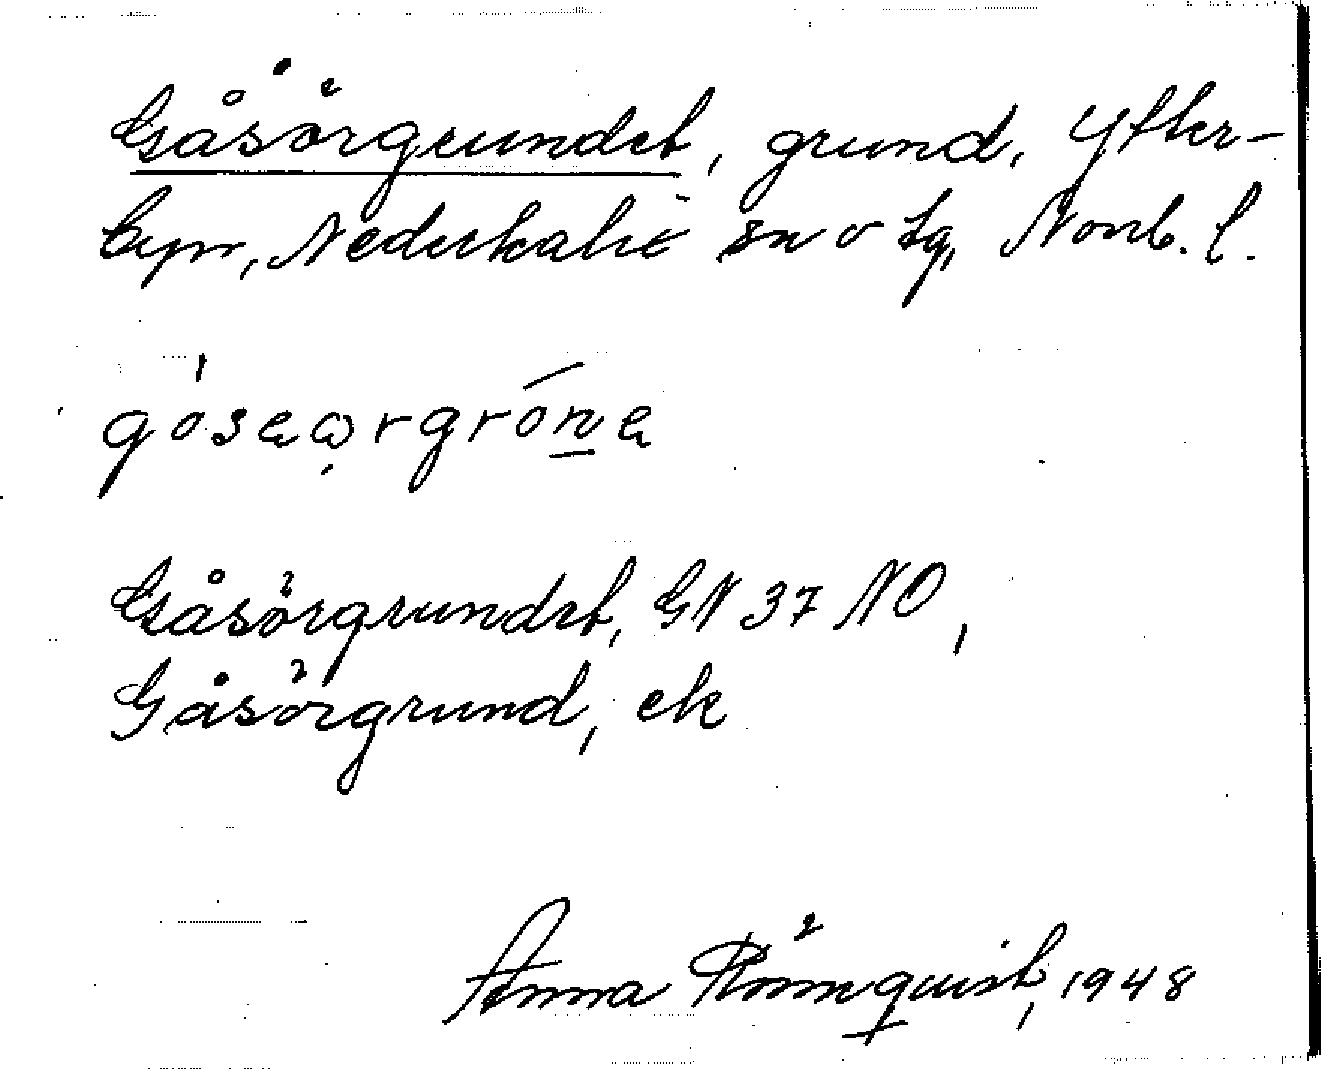 Gåsörgrundet, grund, Ytter-
byn, Nederkalix sn o tg, Norrb. l.
Gåsörgrundet, GN 37 NO,
Gåsörgrund, ek
Anna Rönnquist, 1948